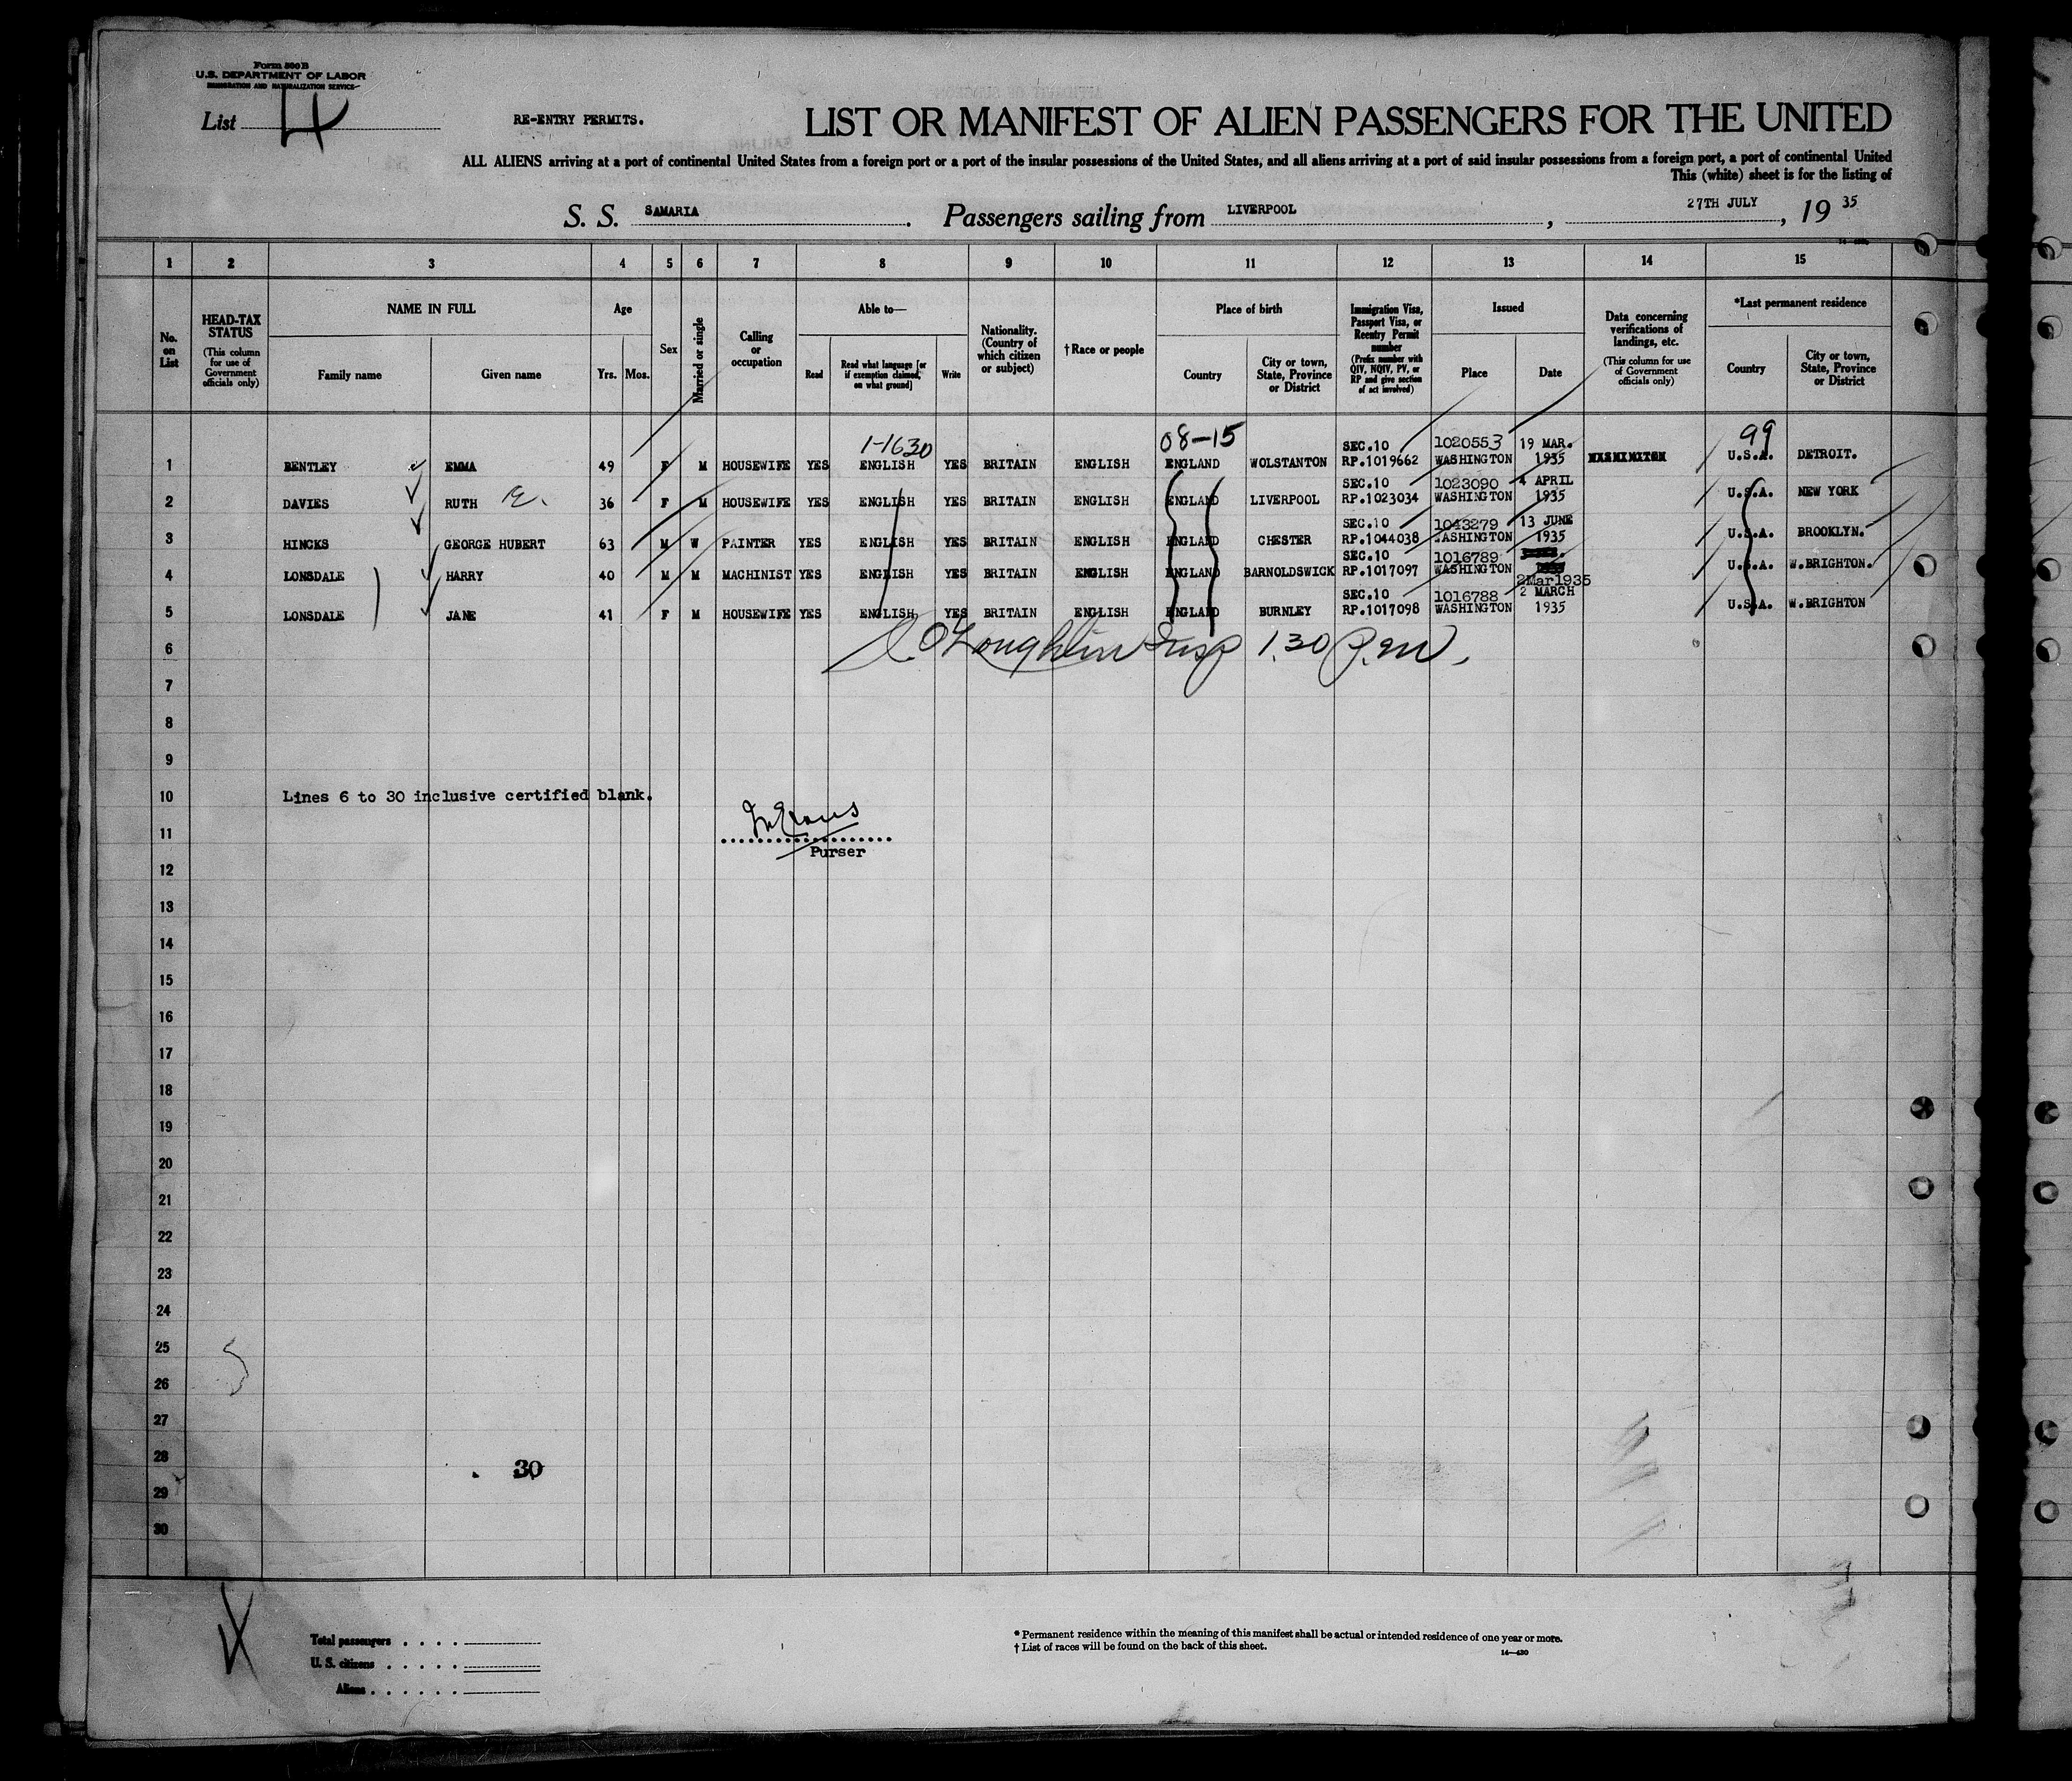 Form 500B
U.S. DEPARTMENT OF LABOR
IMMIGRATION AND NATURALIZATION SERVICE
List 4
RE-ENTRY PERMITS.
LIST OR MANIFEST OF ALIEN PASSENGERS FOR THE UNITED
ALL ALIENS arriving at a port of continental United States from a foreign port or a port of the insular possessions of the United States, and all aliens arriving at a port of said insular possessions from a foreign port, a port of continental United
This (white) sheet is for the listing of
S. S. SAMARIA. Passengers sailing from LIVERPOOL, 27TH JULY, 19 35
1 2 3 4 5 6 7 8 9 10 11 12 13 14 15
No. on List
HEAD-TAX STATUS (This column for use of Government officials only)
NAME IN FULL
Family name
Given name
Age
Yrs. Mos.
Sex
Married or single
Calling or occupation
Able to—
Read
Read what language [or if exemption claimed, on what ground]
Write
Nationality. (Country of which citizen or subject)
†Race or people
Place of birth
Country
City or town, State, Province or District
Immigration Visa, Passport Visa, or Reentry Permit number (Prefix number with QIV, NQIV, PV, or RP and give section of act involved)
Issued
Place
Date
Data concerning verifications of landings, etc. (This column for use of Government officials only)
*Last permanent residence
Country
City or town, State, Province or District
1-1630 08-15 SEC.10 1020553 19 MAR. 99
1 BENTLEY EMMA 49 F M HOUSEWIFE YES ENGLISH YES BRITAIN ENGLISH ENGLAND WOLSTANTON RP.1019662 WASHINGTON 1935 WASHINGTON U.S.A. DETROIT.
SEC.10 1023090 4 APRIL
2 DAVIES RUTH E. 36 F M HOUSEWIFE YES ENGLISH YES BRITAIN ENGLISH ENGLAND LIVERPOOL RP.1023034 WASHINGTON 1935 U.S.A. NEW YORK
SEC.10 1043279 13 JUNE
3 HINCKS GEORGE HUBERT 63 M W PAINTER YES ENGLISH YES BRITAIN ENGLISH ENGLAND CHESTER RP.1044038 WASHINGTON 1935 U.S.A. BROOKLYN.
SEC.10 1016789
4 LONSDALE HARRY 40 M M MACHINIST YES ENGLISH YES BRITAIN ENGLISH ENGLAND BARNOLDSWICK RP.1017097 WASHINGTON 2Mar1935 U.S.A. W.BRIGHTON.
SEC.10 1016788 2 MARCH
5 LONSDALE JANE 41 F M HOUSEWIFE YES ENGLISH YES BRITAIN ENGLISH ENGLAND BURNLEY RP.1017098 WASHINGTON 1935 U.S.A. W.BRIGHTON
6 O'Loughlin Insp 1.30 P.M.
7
8
9
10 Lines 6 to 30 inclusive certified blank.
11
Purser
12
13
14
15
16
17
18
19
20
21
22
23
24
25
26
27
28 30
29
30
Total passengers
U. S. citizens
Aliens
* Permanent residence within the meaning of this manifest shall be actual or intended residence of one year or more.
† List of races will be found on the back of this sheet.
14—430